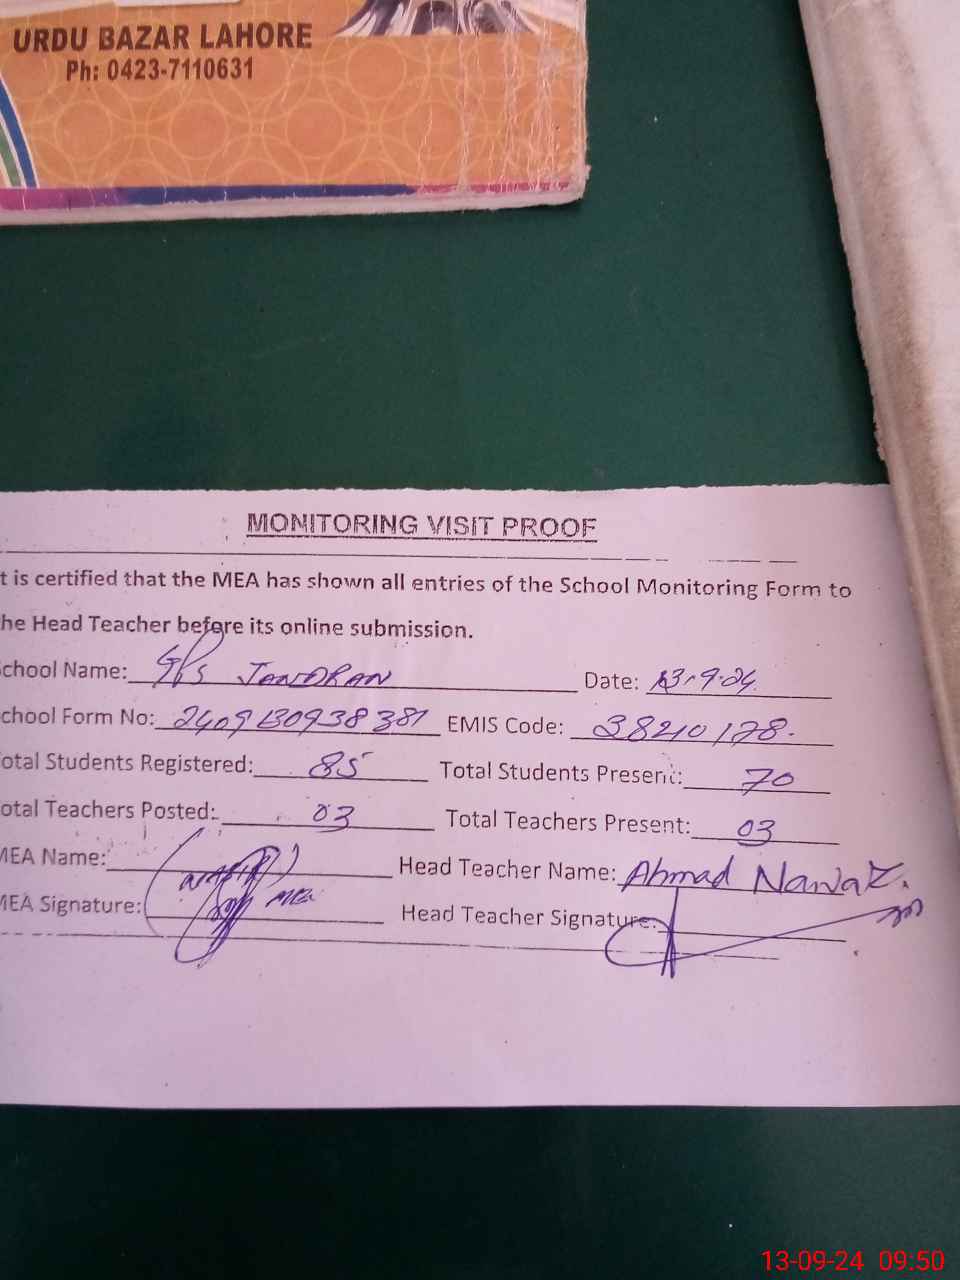 URDU BAZAR LAHORE
Ph: 0423-7110631
MONITORING VISIT PROOF
t is certified that the MEA has shown all entries of the School Monitoring Form to
he Head Teacher before its online submission.
chool Name: GPS JANDRAN Date: 13-9-24
chool Form No: 2409130938381 EMIS Code: 38210178.
otal Students Registered: 85 Total Students Present: 70
otal Teachers Posted: 03 Total Teachers Present: 03
MEA Name: Head Teacher Name: Ahmad Nawaz.
MEA Signature: MEA Head Teacher Signature:
13-09-24 09:50